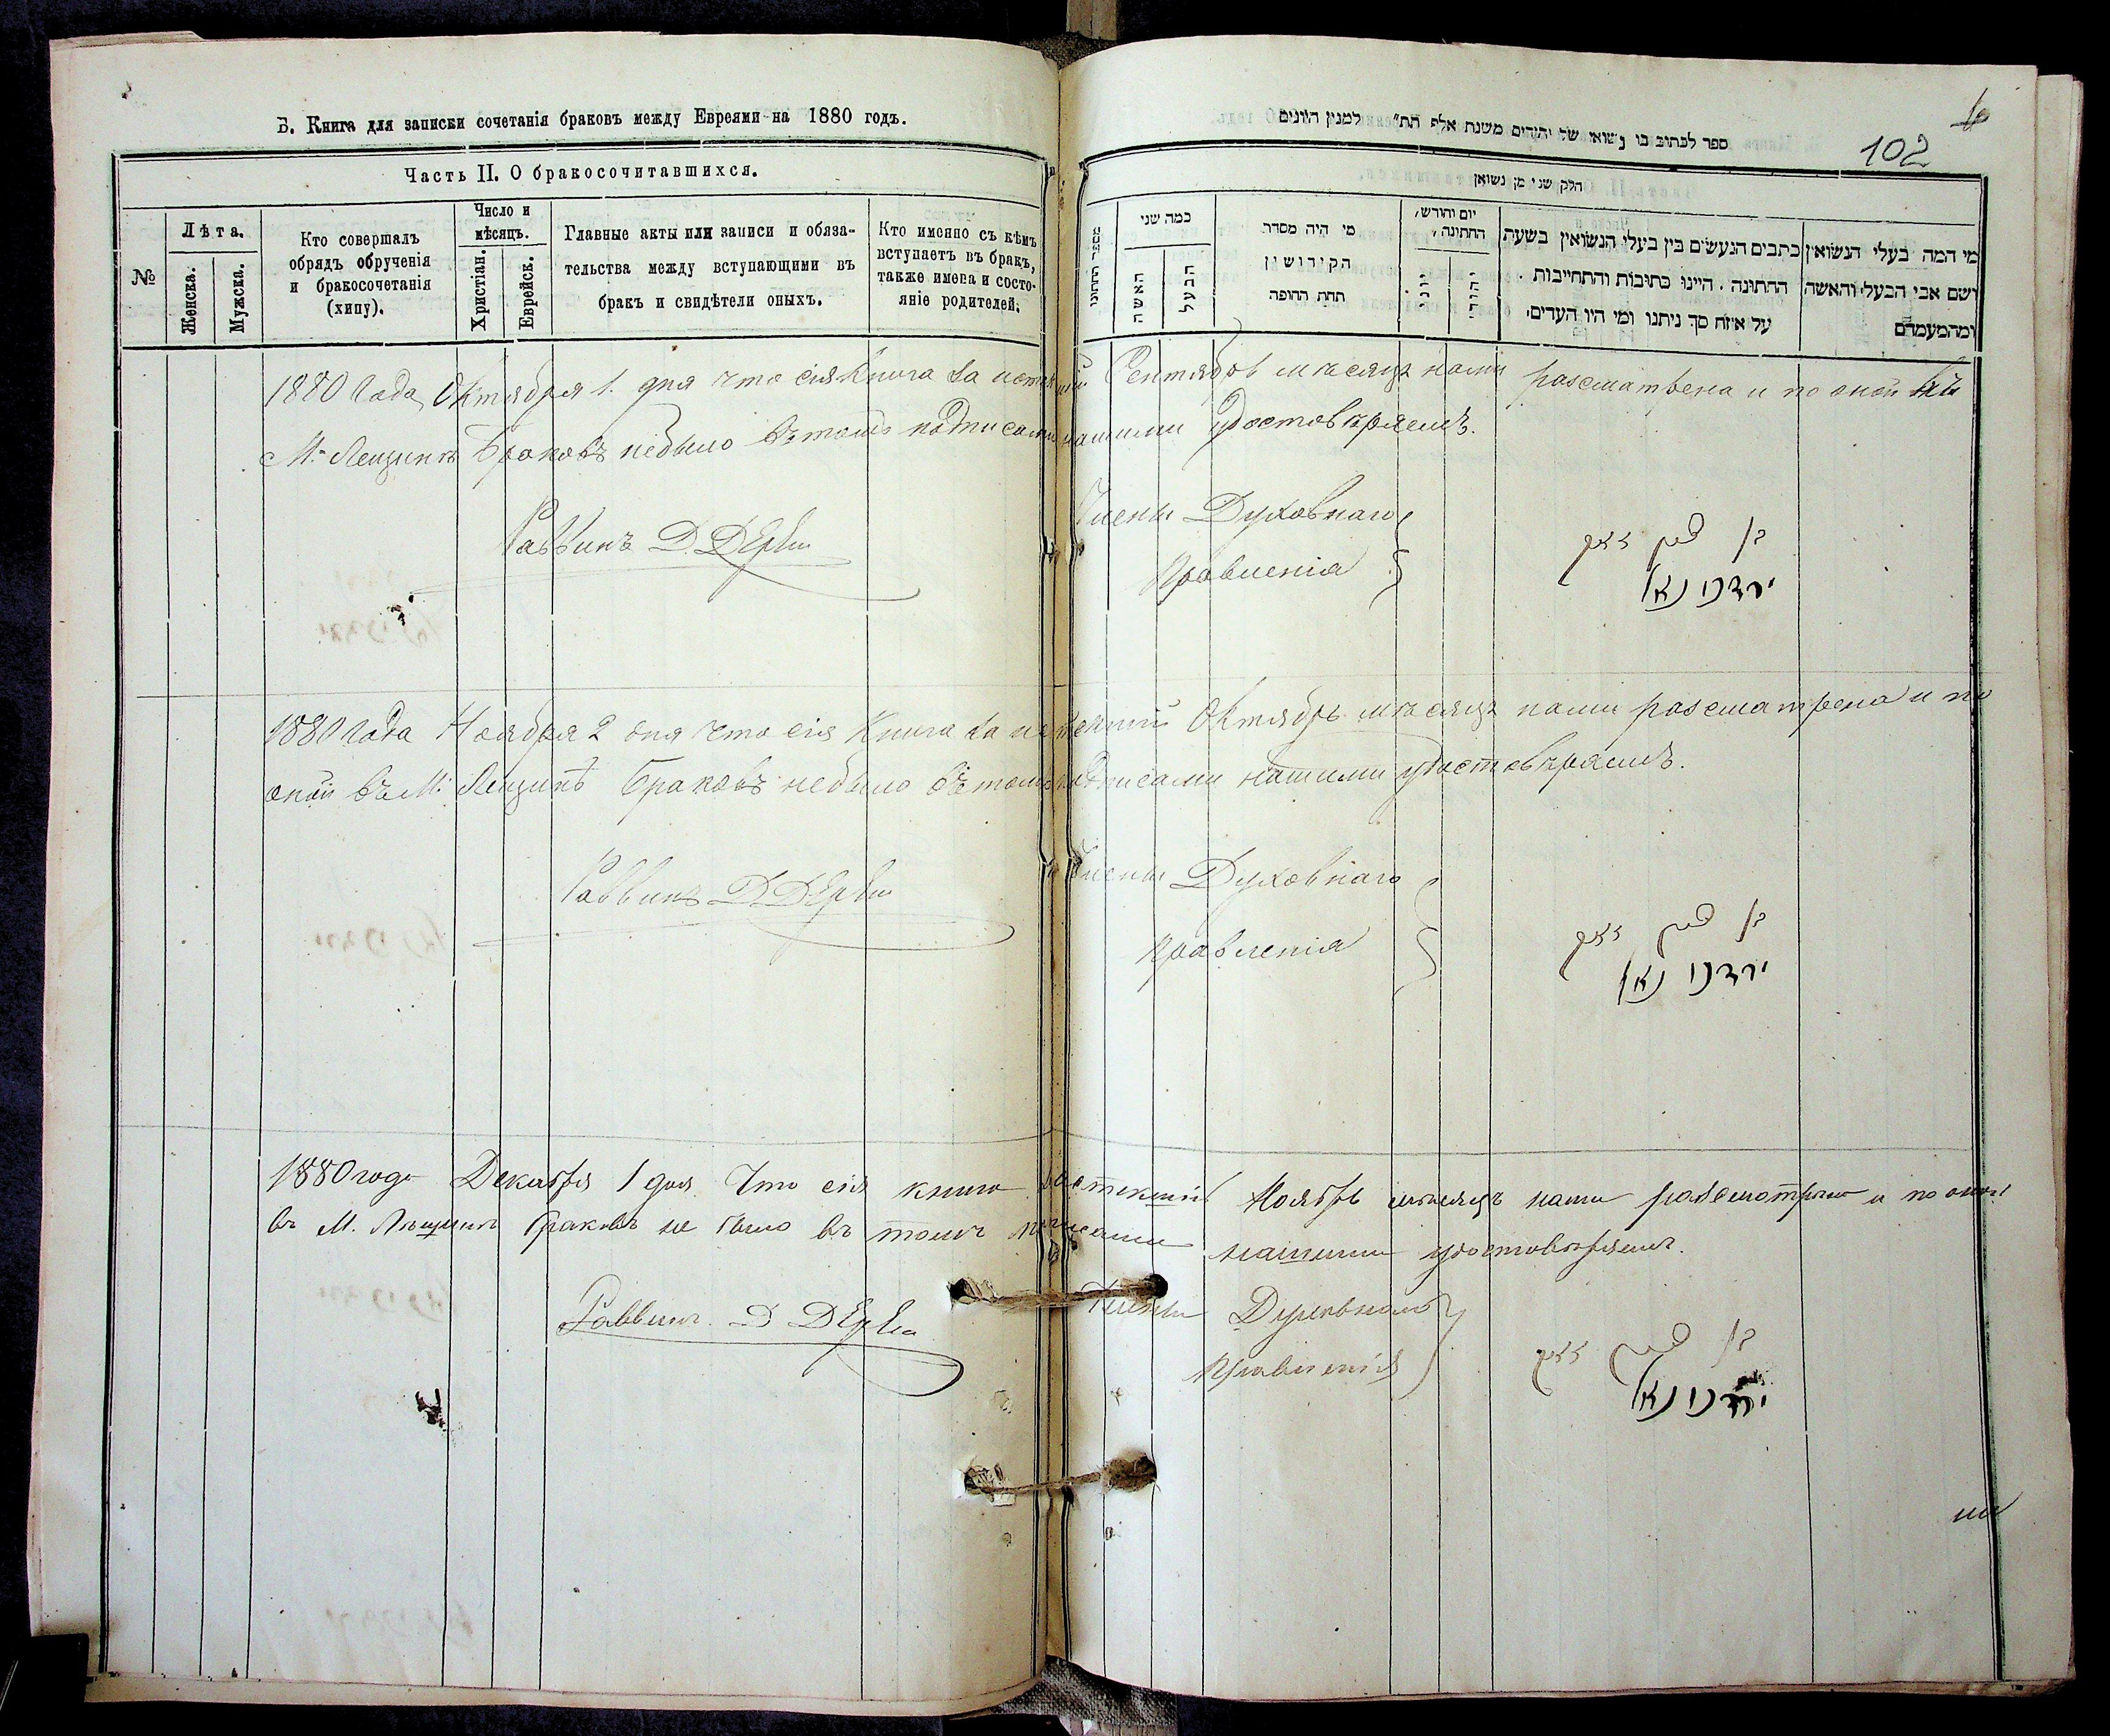 Б. Книга для записки сочетанія браковъ между Евреями на 1880 годъ.
Часть II. О бракосочитавшихся.
№
Лѣта.
Женска.
Мужска.
Кто совершалъ
обрядъ обрученія
и бракосочетанія
(хипу).
Число и
мѣсяцъ.
Христіан.
Еврейск.
Главные акты или записи и обяза-
тельства между вступающими въ
бракъ и свидѣтели оныхъ.
Кто именно съ кѣмъ
вступаетъ въ бракъ,
также имена и состо-
яніе родителей.
ספר לכתוב בו נשואי של יהודים משנת אלף תת״ למנין היונים
102
חלק שני מן נשואין
כמה שני
האשה
הבעל
מי היה מסדר
הקידושין
תחת החופה
יום וחורש,
החתונה,
כתבים הנעשים בין בעלי הנשואין בשעת
החתונה. היינו כתובות והתחייבות
על איזה סך ניתנו ומי היו העדים.
מי המה בעלי הנשואין
ושם אבי הבעל והאשה
ומהמעמדם
1880 Года, Октября 1. дня что сія Книга за истекшій Сентябрь мѣсяцъ нами разсматрена и по оной въ
М. Лещинѣ Браковъ небыло въ томъ подписами нашими удостовѣряемъ.
Раввинъ Д. Д
Члены Духовнаго
Правленія
1880 Года Ноября 2 дня что сія Книга за истекшій Октябрь мѣсяцъ нами разсматрена и по
оной въ М. Лещинѣ Браковъ небыло въ томъ подписами нашими удостовѣряемъ.
Раввинъ Д. Д
Члены Духовнаго
Правленія
1880 года Декабря 1 дня. Что сія книга за истекшій Ноябрь мѣсяцъ нами разсмотрена и по оной
въ М. Лѣщинѣ браковъ не было въ томъ подписами нашими удостовѣряемъ.
Раввинъ Д
Члены Духовнаго
Правленія